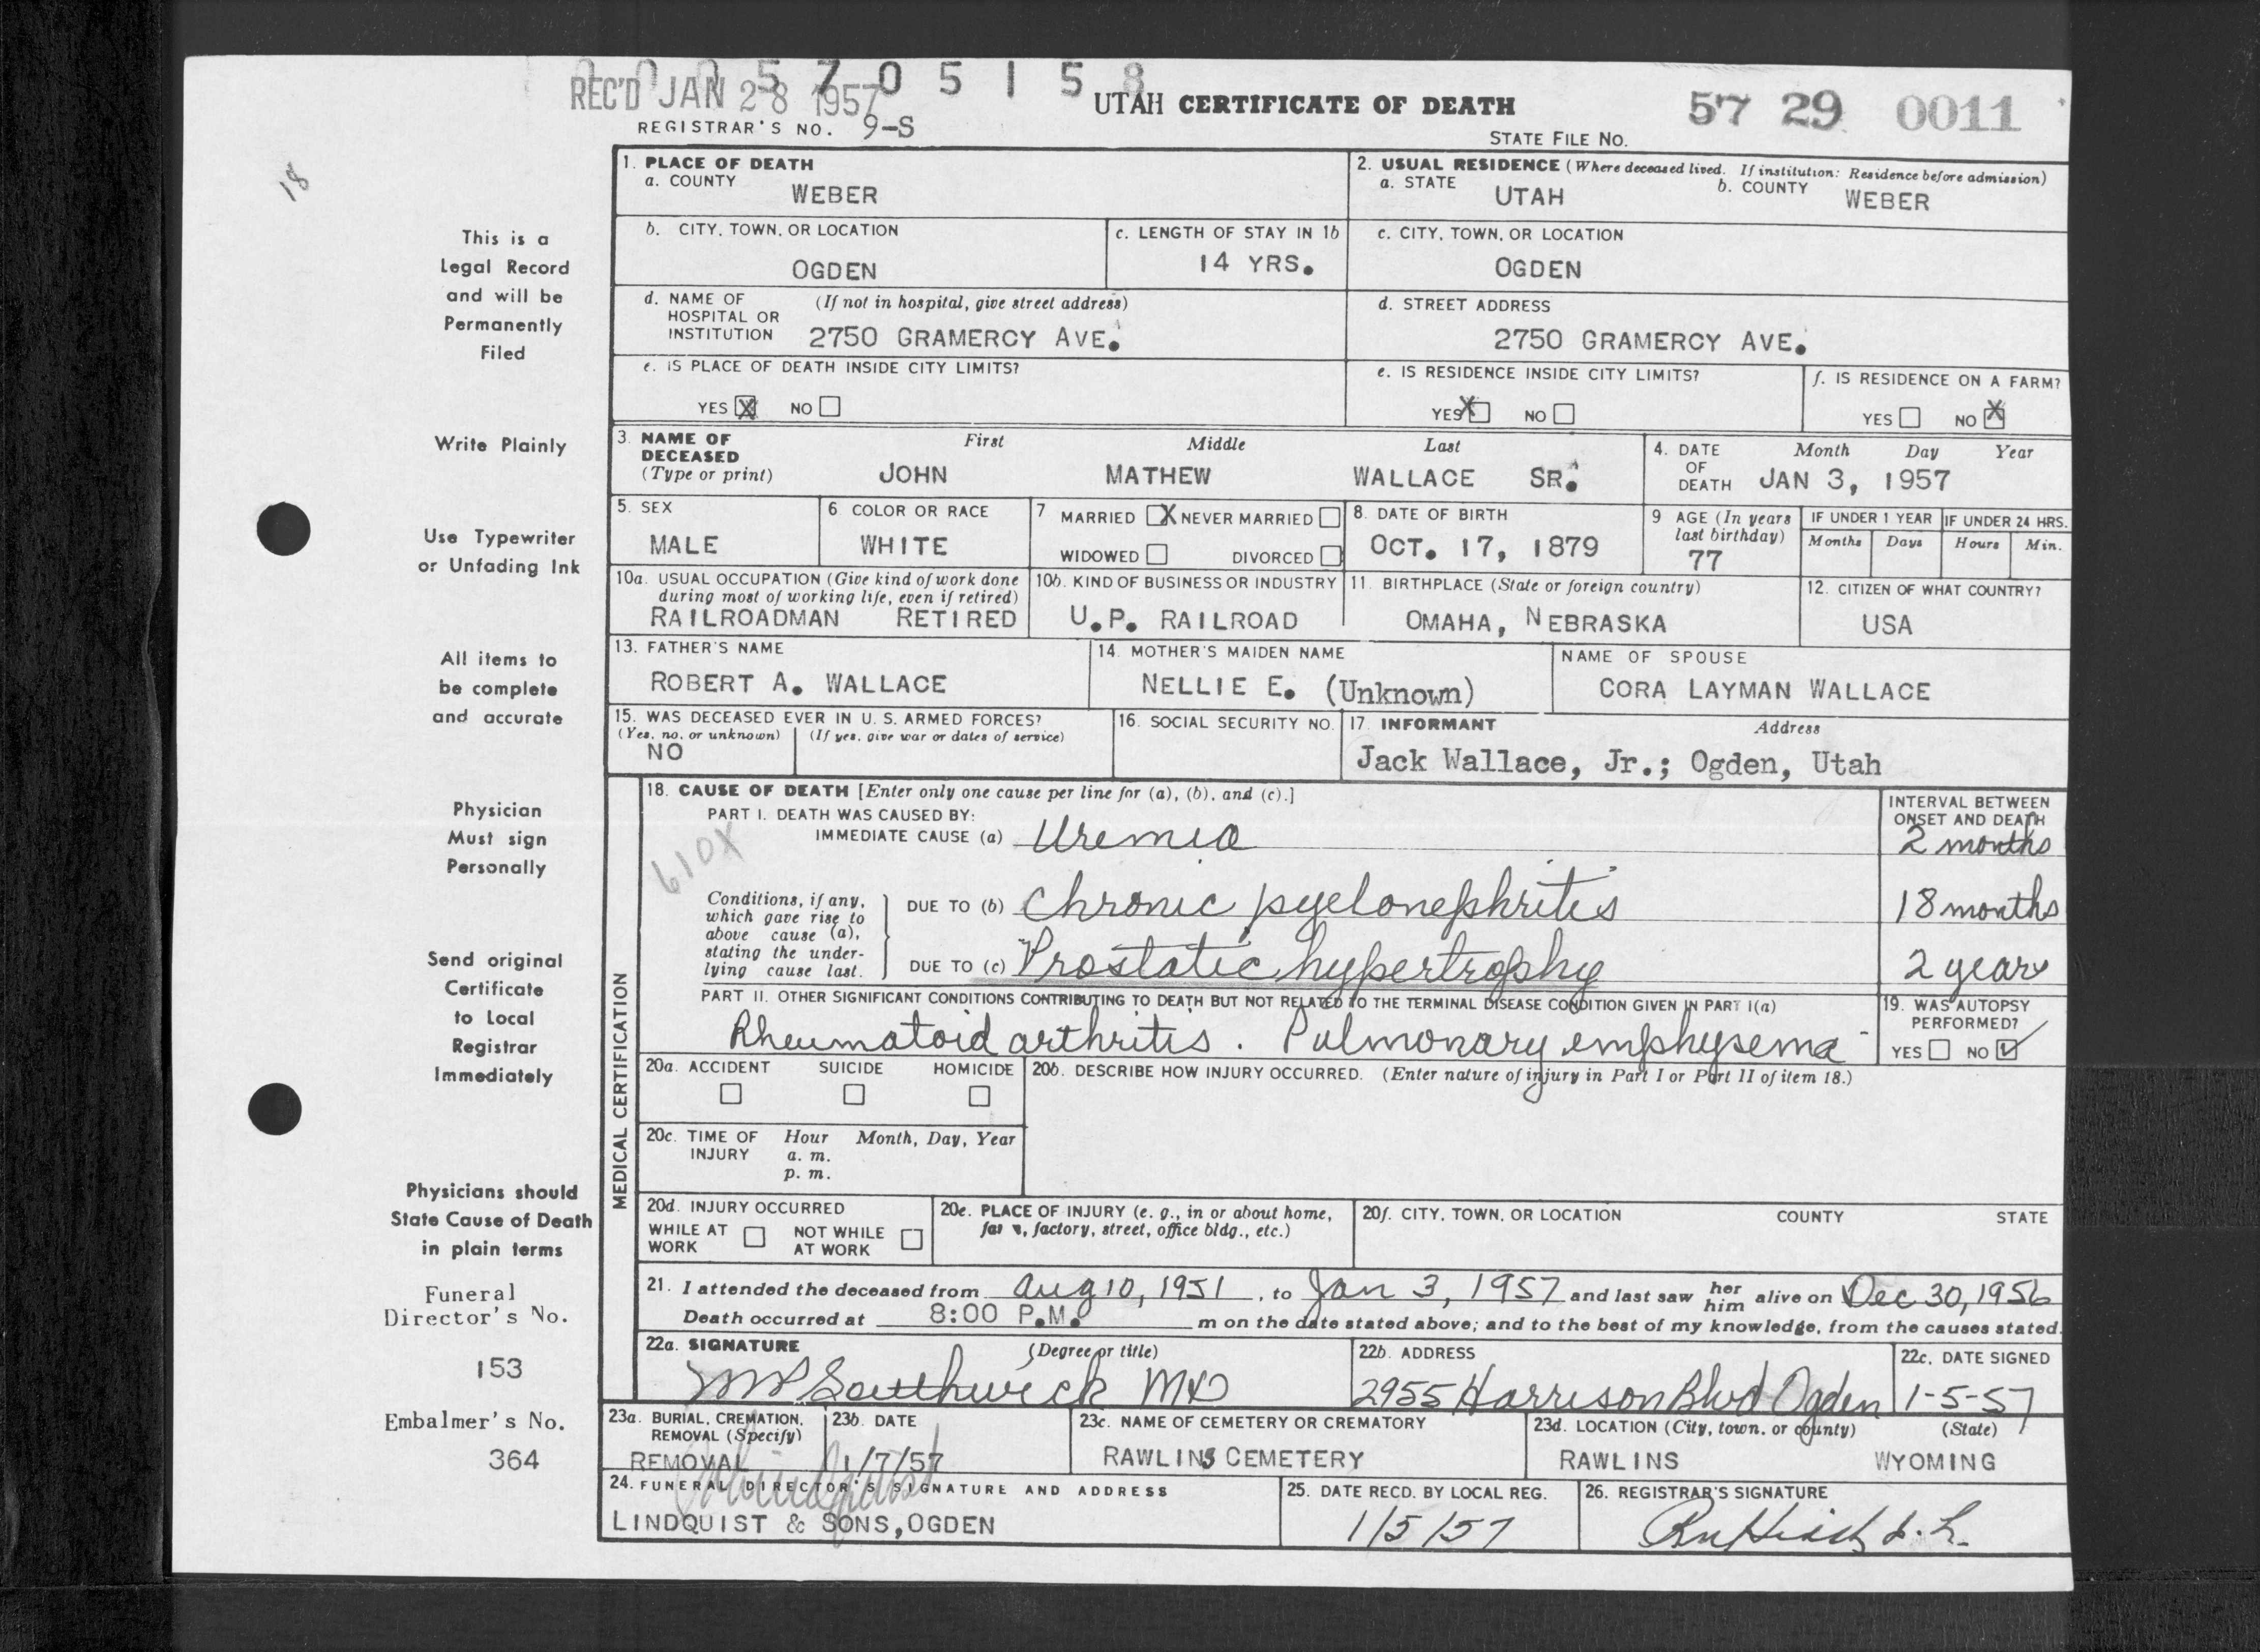 0 0 0 5 7 0 5 1 5 8
REC'D JAN 28 1957
UTAH CERTIFICATE OF DEATH
57 29 0011
REGISTRAR'S NO. 9-S
STATE FILE NO.
18
1. PLACE OF DEATH
a. COUNTY
WEBER
2. USUAL RESIDENCE (Where deceased lived. If institution: Residence before admission)
a. STATE UTAH b. COUNTY WEBER
This is a
Legal Record
and will be
Permanently
Filed
b. CITY, TOWN, OR LOCATION
OGDEN
c. LENGTH OF STAY IN 1b
14 YRS.
c. CITY, TOWN, OR LOCATION
OGDEN
d. NAME OF (If not in hospital, give street address)
HOSPITAL OR
INSTITUTION 2750 GRAMERCY AVE.
d. STREET ADDRESS
2750 GRAMERCY AVE.
e. IS PLACE OF DEATH INSIDE CITY LIMITS?
YES X NO
e. IS RESIDENCE INSIDE CITY LIMITS?
YES X NO
f. IS RESIDENCE ON A FARM?
YES NO X
Write Plainly
3. NAME OF DECEASED (Type or print)
First Middle Last
JOHN MATHEW WALLACE SR.
4. DATE OF DEATH
Month Day Year
JAN 3, 1957
Use Typewriter
or Unfading Ink
5. SEX
MALE
6. COLOR OR RACE
WHITE
7 MARRIED X NEVER MARRIED
WIDOWED DIVORCED
8. DATE OF BIRTH
OCT. 17, 1879
9 AGE (In years
last birthday)
77
IF UNDER 1 YEAR
Months Days
IF UNDER 24 HRS.
Hours Min.
10a. USUAL OCCUPATION (Give kind of work done
during most of working life, even if retired)
RAILROADMAN RETIRED
10b. KIND OF BUSINESS OR INDUSTRY
U.P. RAILROAD
11. BIRTHPLACE (State or foreign country)
OMAHA, NEBRASKA
12. CITIZEN OF WHAT COUNTRY?
USA
All items to
be complete
and accurate
13. FATHER'S NAME
ROBERT A. WALLACE
14. MOTHER'S MAIDEN NAME
NELLIE E. (Unknown)
NAME OF SPOUSE
CORA LAYMAN WALLACE
15. WAS DECEASED EVER IN U. S. ARMED FORCES?
(Yes, no, or unknown) (If yes, give war or dates of service)
NO
16. SOCIAL SECURITY NO.
17. INFORMANT Address
Jack Wallace, Jr.; Ogden, Utah
Physician
Must sign
Personally
MEDICAL CERTIFICATION
18. CAUSE OF DEATH [Enter only one cause per line for (a), (b), and (c).]
PART I. DEATH WAS CAUSED BY:
IMMEDIATE CAUSE (a) Uremia
INTERVAL BETWEEN
ONSET AND DEATH
2 months
610X
Conditions, if any,
which gave rise to
above cause (a),
stating the under-
lying cause last.
DUE TO (b) Chronic pyelonephritis
18 months
DUE TO (c) Prostatic hypertrophy
2 years
Send original
Certificate
to Local
Registrar
Immediately
PART II. OTHER SIGNIFICANT CONDITIONS CONTRIBUTING TO DEATH BUT NOT RELATED TO THE TERMINAL DISEASE CONDITION GIVEN IN PART I(a)
Rheumatoid arthritis. Pulmonary emphysema -
19. WAS AUTOPSY
PERFORMED?
YES NO
20a. ACCIDENT SUICIDE HOMICIDE
20b. DESCRIBE HOW INJURY OCCURRED. (Enter nature of injury in Part I or Part II of item 18.)
20c. TIME OF INJURY
Hour Month, Day, Year
a. m.
p. m.
Physicians should
State Cause of Death
in plain terms
20d. INJURY OCCURRED
WHILE AT WORK NOT WHILE AT WORK
20e. PLACE OF INJURY (e. g., in or about home,
farm, factory, street, office bldg., etc.)
20f. CITY, TOWN, OR LOCATION COUNTY STATE
21. I attended the deceased from Aug 10, 1951, to Jan 3, 1957 and last saw her him alive on Dec 30, 1956
Death occurred at 8:00 P.M. m on the date stated above; and to the best of my knowledge, from the causes stated.
Funeral
Director's No.
153
22a. SIGNATURE (Degree or title)
Southwick MD
22b. ADDRESS
2955 Harrison Blvd Ogden
22c. DATE SIGNED
1-5-57
Embalmer's No.
364
23a. BURIAL, CREMATION,
REMOVAL (Specify)
REMOVAL
23b. DATE
1/7/57
23c. NAME OF CEMETERY OR CREMATORY
RAWLINS CEMETERY
23d. LOCATION (City, town, or county) (State)
RAWLINS WYOMING
24. FUNERAL DIRECTOR'S SIGNATURE AND ADDRESS
LINDQUIST & SONS, OGDEN
25. DATE RECD. BY LOCAL REG.
1/5/57
26. REGISTRAR'S SIGNATURE